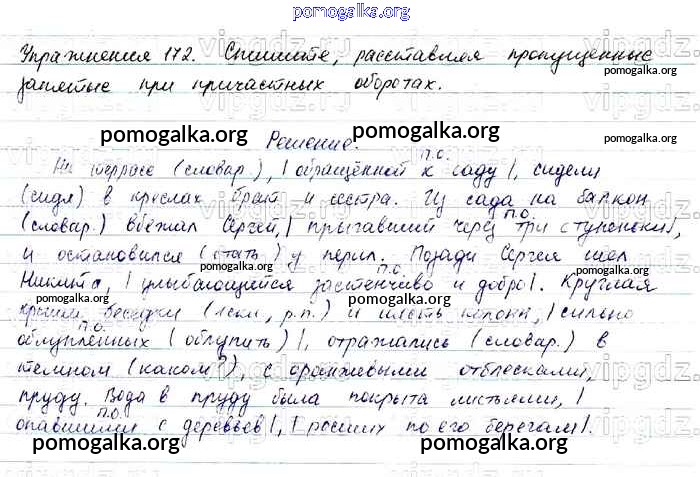 pomogalka.org
Упражнения 172. Спишите, расставляя пропущенные
pomogalka.org
запятые при причастных оборотах.
pomogalka.org
pomogalka.org
Решение.
п.о.
На террасе (словар.), | обращённой к саду |, сидели
(сидя) в креслах брат и сестра. Из сада на балкон
п.о.
(словар.) вбежал Сергей, | прыгавший через три ступеньки |,
и остановился (стать) у перил. Позади Сергея шел
п.о.
Никита, | улыбающейся застенчиво и добро |. Круглая
pomogalka.org
pomogalka.org
pomogalka.org
крыша беседки (1скл., р.п.) и шесть колонн, | сильно
п.о.
облупленных (облупить) |, отражались (словар.) в
темном (каком?), с оранжевыми отблесками,
пруду. Вода в пруду была покрыта листьями, |
п.о.
опавшими с деревьев |, | росших по его берегам |.
pomogalka.org
pomogalka.org
pomogalka.org